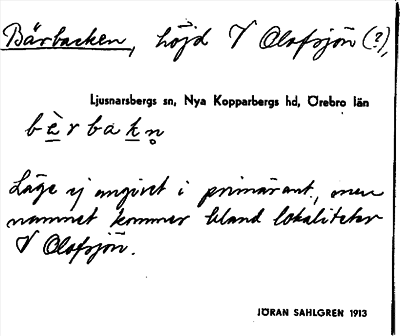 Bärbacken, höjd V Olofsjön (?),
Ljusnarsbergs sn, Nya Kopparbergs hd, Örebro län
bèrbakn̥
Läge ej angivet i primäruat., men
namnet kommer bland lokaliteter
V Olofsjön.
JÖRAN SAHLGREN 1913